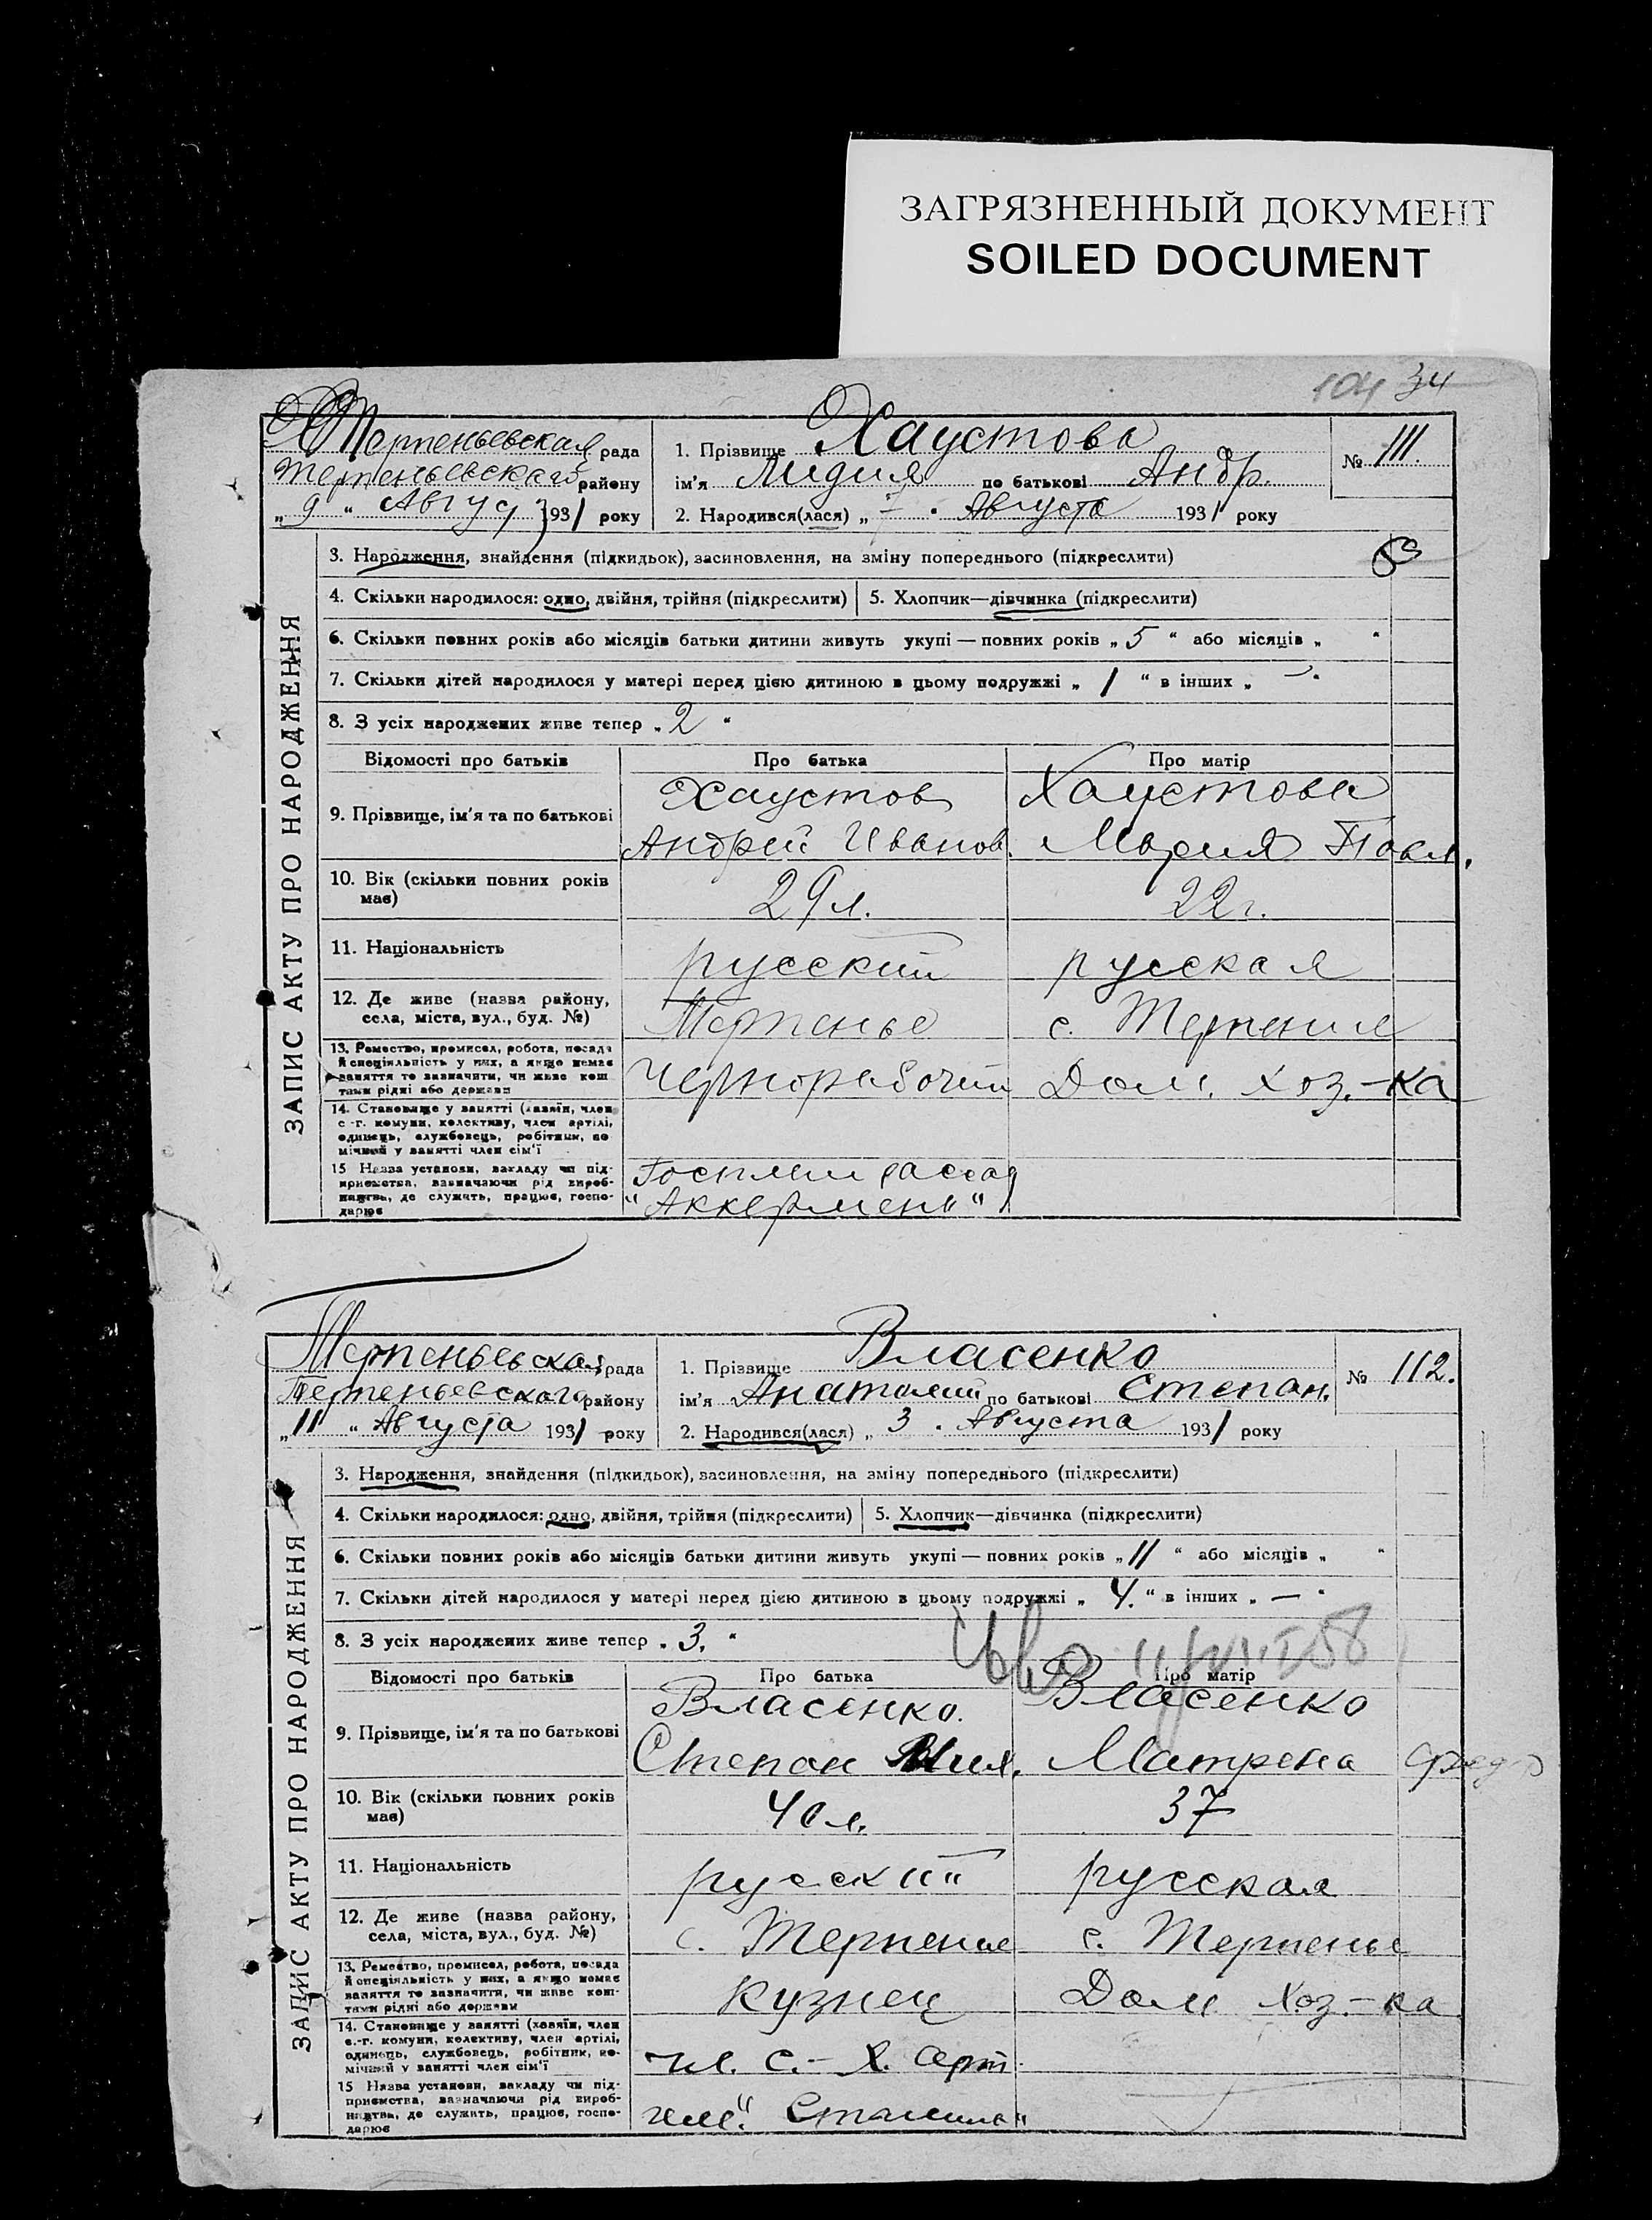 ЗАГРЯЗНЕННЫЙ ДОКУМЕНТ
SOILED DOCUMENT
104 34
Терпеньевская рада
Терпеньевского району
„ 9 “ Август 1931 року
1. Прізвище Хаустова
ім'я Лидия по батькові Андр.
2. Народився(лася) „ 7 “ Августа 1931 року
№ 111.
ЗАПИС АКТУ ПРО НАРОДЖЕННЯ
3. Народження, знайдення (підкидьок), засиновлення, на зміну попереднього (підкреслити)
4. Скільки народилося: одно, двійня, трійня (підкреслити) 5. Хлопчик—дівчинка (підкреслити)
6. Скільки повних років або місяців батьки дитини живуть укупі — повних років „ 5 “ або місяців „ “
7. Скільки дітей народилося у матері перед цією дитиною в цьому подружжі „ 1 “ в інших „ — “
8. З усіх народжених живе тепер „ 2 “
Відомості про батьків Про батька Про матір
9. Прізвище, ім'я та по батькові Хаустов Хаустова
Андрей Иванов. Мария Павл.
10. Вік (скільки повних років має) 29 л. 22 г.
11. Національність русский русская
12. Де живе (назва району, села, міста, вул., буд. №) Терпенье с. Терпение
13. Ремество, промисел, робота, посада й спеціяльність у них, а якщо немає заняття то зазначити, чи живе коштами рідні або держави Чернорабочий Дом. хоз.-ка
14. Становище у занятті (хазяїн, член с.-г. комуни, колективу, член артілі, одинець, службовець, робітник, помічний у занятті член сім'ї
15 Назва установи, закладу чи підприємства, зазначаючи рід виробництва, де служить, працює, господарює
"Аккермень"
Терпеньевская рада
Терпеньевского району
„ 11 “ Августа 1931 року
1. Прізвище Власенко
ім'я Анатолий по батькові Степан.
2. Народився(лася) „ 3 “ Августа 1931 року
№ 112.
ЗАПИС АКТУ ПРО НАРОДЖЕННЯ
3. Народження, знайдення (підкидьок), засиновлення, на зміну попереднього (підкреслити)
4. Скільки народилося: одно, двійня, трійня (підкреслити) 5. Хлопчик—дівчинка (підкреслити)
6. Скільки повних років або місяців батьки дитини живуть укупі — повних років „ 11 “ або місяців „ “
7. Скільки дітей народилося у матері перед цією дитиною в цьому подружжі „ 4. “ в інших „ — “
8. З усіх народжених живе тепер „ 3. “
Відомості про батьків Про батька Про матір
9. Прізвище, ім'я та по батькові Власенко. Власенко
Степан Матрена
10. Вік (скільки повних років має) 40 л. 37
11. Національність русский русская
12. Де живе (назва району, села, міста, вул., буд. №) с. Терпение с. Терпенье
13. Ремество, промисел, робота, посада й спеціяльність у них, а якщо немає заняття то зазначити, чи живе коштами рідні або держави Кузнец Дом. хоз.-ка
14. Становище у занятті (хазяїн, член с.-г. комуни, колективу, член артілі, одинець, службовець, робітник, помічний у занятті член сім'ї чл. с.-х. арт
15 Назва установи, закладу чи підприємства, зазначаючи рід виробництва, де служить, працює, господарює